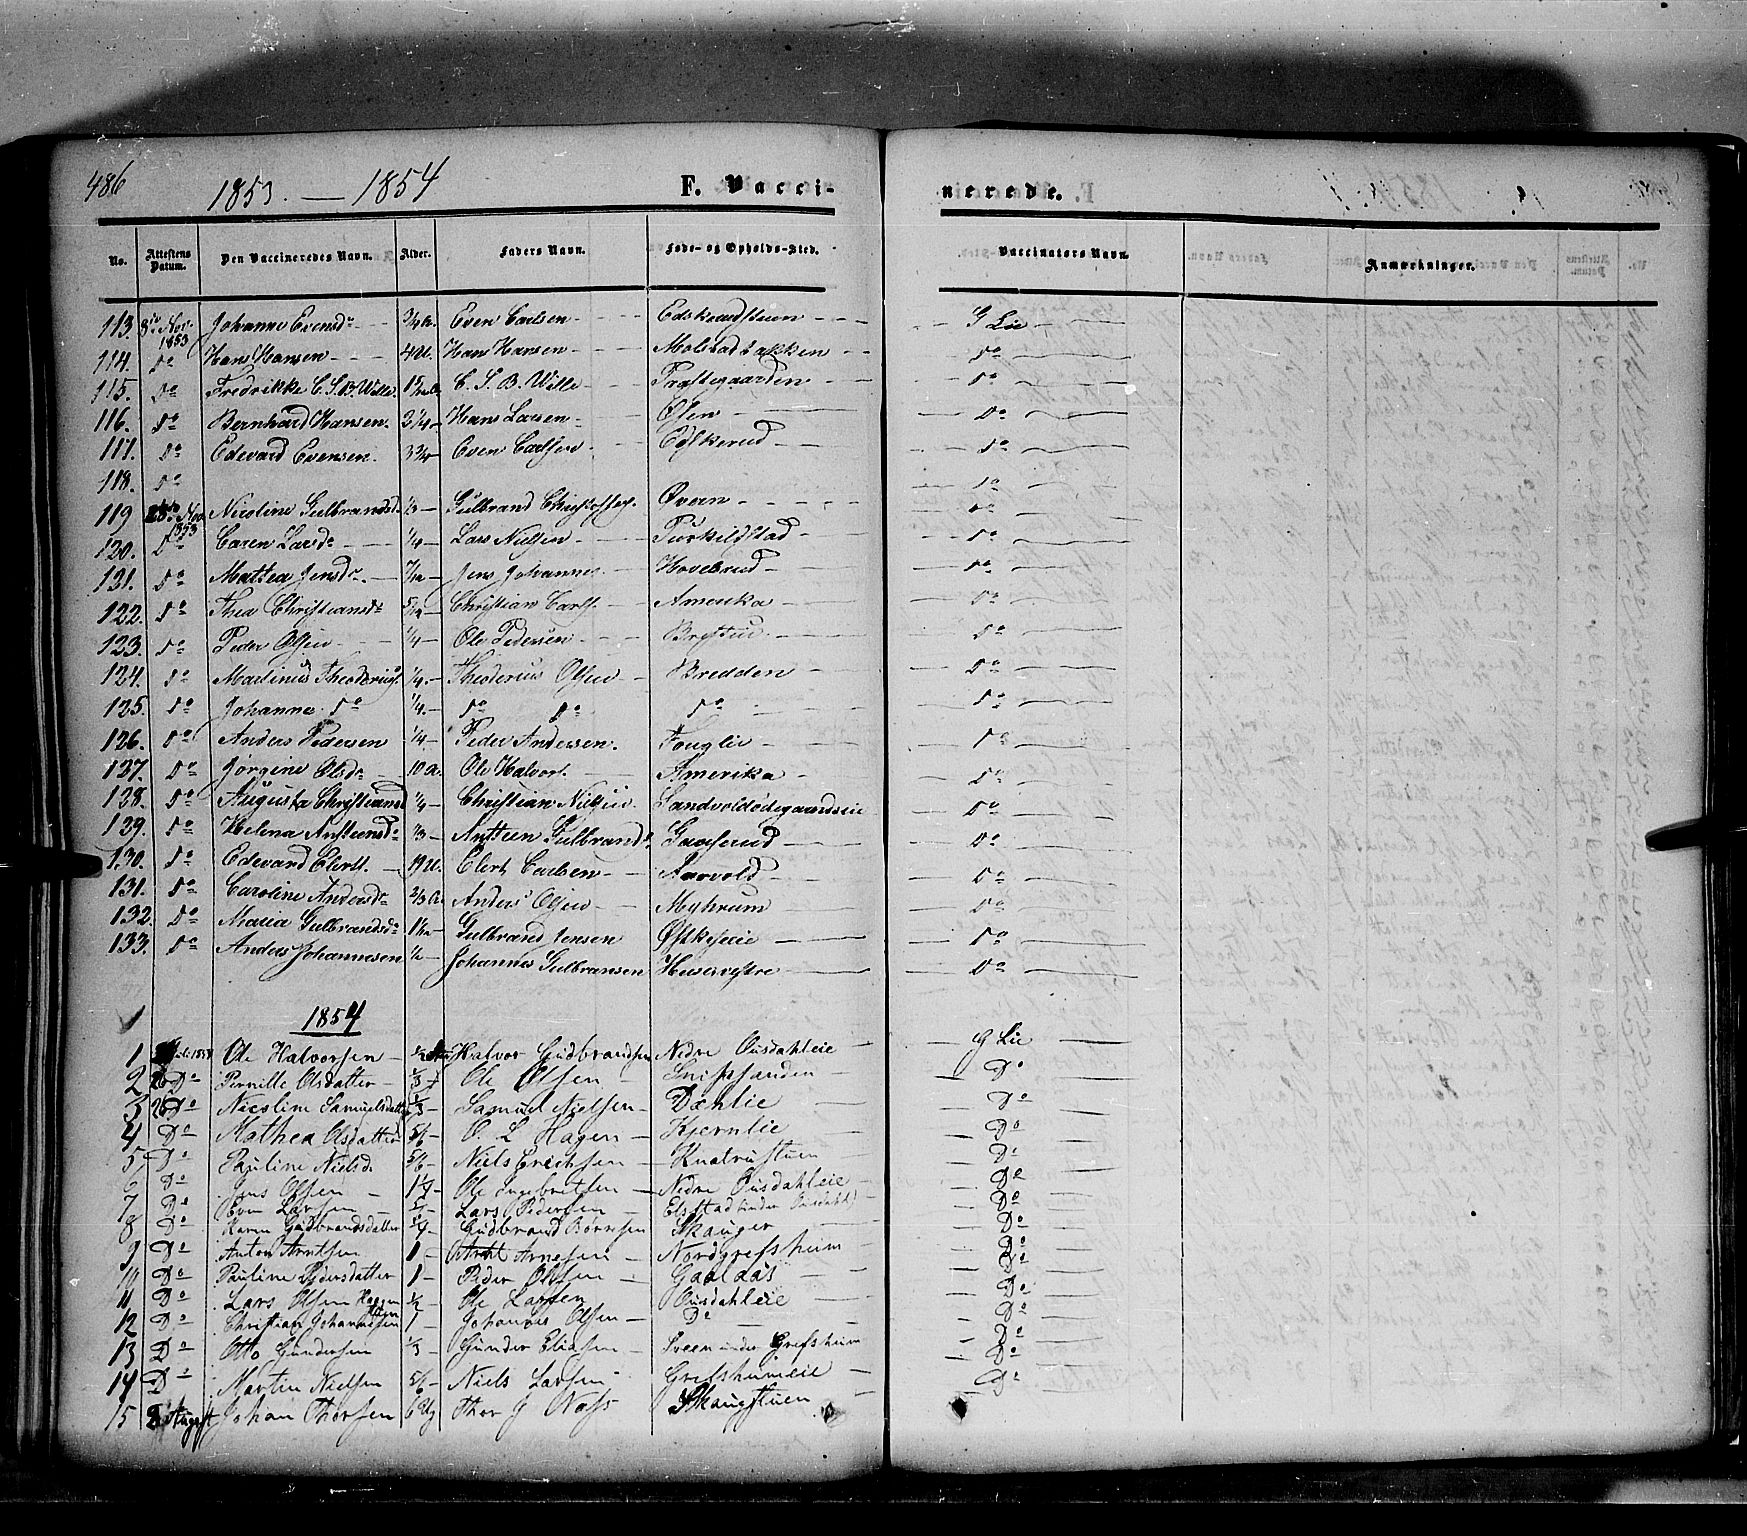 486 1853. — 1854 F. Vacci- nerede.
No. Attestens Datum. Den Vaccineredes Navn. Alder. Faders Navn. Føde- og Opholds-Sted. Vaccinators Navn. Anmærkninger.
113. 8 Nov. 1853 Johanne Evensdr 3/4 A. Even Carlsen G Lie
114. Do Hans Hansen 4 U. Hans Hansen Molstadbakken Do
115. Do Fredrikke C. S. B. Wille. C. S. B. Wille Præstegaarden Do
116. Do Bernhard Hansen. 2 1/4 Hans Larsen Ofen Do
117. Do Edevard Evensen. 3 3/4 Even Carlsen Do
118. Do Do
119 Nov 1853 Nicoline Gulbrandsd. 1/3 Gulbrand Christoffers. Øveren Do
120. Do Caren Larsdr 1/4 Lars Nielsen Turkildstad Do
121. Do Mathea Jensdr. 7/12 Jens Johannes. Hovebrud Do
122. Do Thea Christiansdr 5/12 Christian Carls. Amerika Do
123. Do Peder Olsen 1/4 Ole Pedersen Do
124. Do Martinus Theoderius. 1/4 Theoderius Olsen Bredden Do
125. Do Johanne Do 1/4 Do Do Do Do
126. Do Anders Pedersen 1/4 Peder Andersen. Fouglie Do
127. Do Jørgine Olsdr 10 U. Ole Halvors. Amerika Do
128. Do Augusta Christiansd 1/4 Christian Nielsen. Sandvoldødegaardseie Do
129. Do Helena Anstensdr 1/3 Ansten Gulbrands. Do
130. Do Edevard Elerts. 19 U. Elert Carlsen Aarvold Do
131. Do Caroline Andersdr 2/3 A. Anders Olsen Myhrum Do
132. Do Maria Gulbrandsdr Gulbrand Jensen Do
133. Do Anders Johannesen Johannes Gulbransen Huservestre Do
1854
1 Ole Halvorsen 1/2 Halvor Gudbrandsen Nedre Ousdahleie G Lie
2 26 Do Pernille Olsdatter 1/3 Ole Olsen Snipsanden Do
3 26 Do Nicoline Samuelsdatter 1/3 Samuel Nielsen Dæhlie Do
4 Do Mathea Olsdatter 5/6 O. L. Hagen Kjernlie Do
5 Do Pauline Nielsd. 5/6 Niels Erichsen Knatrustuen Do
6 Do Jens Olsen Ole Ingebretsen Nedre Ousdahleie Do
7 Do Even Larsen Lars Pedersen Elstad (under Ousdahl) Do
8 Do Karen Gudbrandsdatter Gudbrand Børresen Skauger Do
9 Do Anton Arntsen 1 Arnesen Nordgrefsheim Do
10 Do Pauline Pedersdatter 1 Peder Olsen Gaalaas Do
11 Do Lars Olsen Hagen 1/2 Ole Larsen Ousdahleie Do
12 Do Christian Johannesen 1 Johannes Olsen Do Do
13 Do Otto Gundersen 1/3 Gunder Eliasen Sveen under Grefsheim Do
14 Do Martin Nielsen 5/6 Niels Larsen Grefsheimeie Do
15 8 August Johan Thorsen Thor J Næss Skaugstuen Do